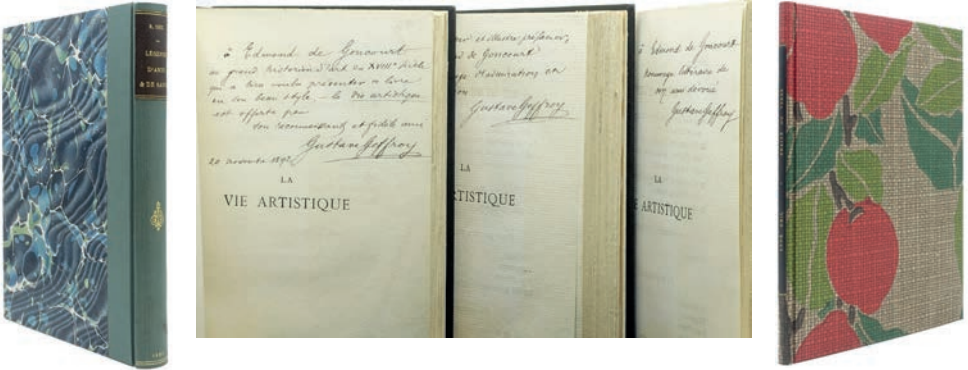 LÉGENDES
D'ARTS
à Edmond de Goncourt
au grand historien d'art du XVIIIe siècle
qui a bien voulu présenter ce livre
en son beau style – la Vie artistique
est offerte par
son reconnaissant et fidèle ami
Gustave Geffroy
20 novembre 1892
LA
VIE ARTISTIQUE
et illustre préfacier,
de Goncourt
admiration et
Gustave Geffroy
LA
TISTIQUE
à Edmond de Goncourt
hommage littéraire de
son ami dévoué
Gustave Geffroy
LA
E ARTISTIQUE